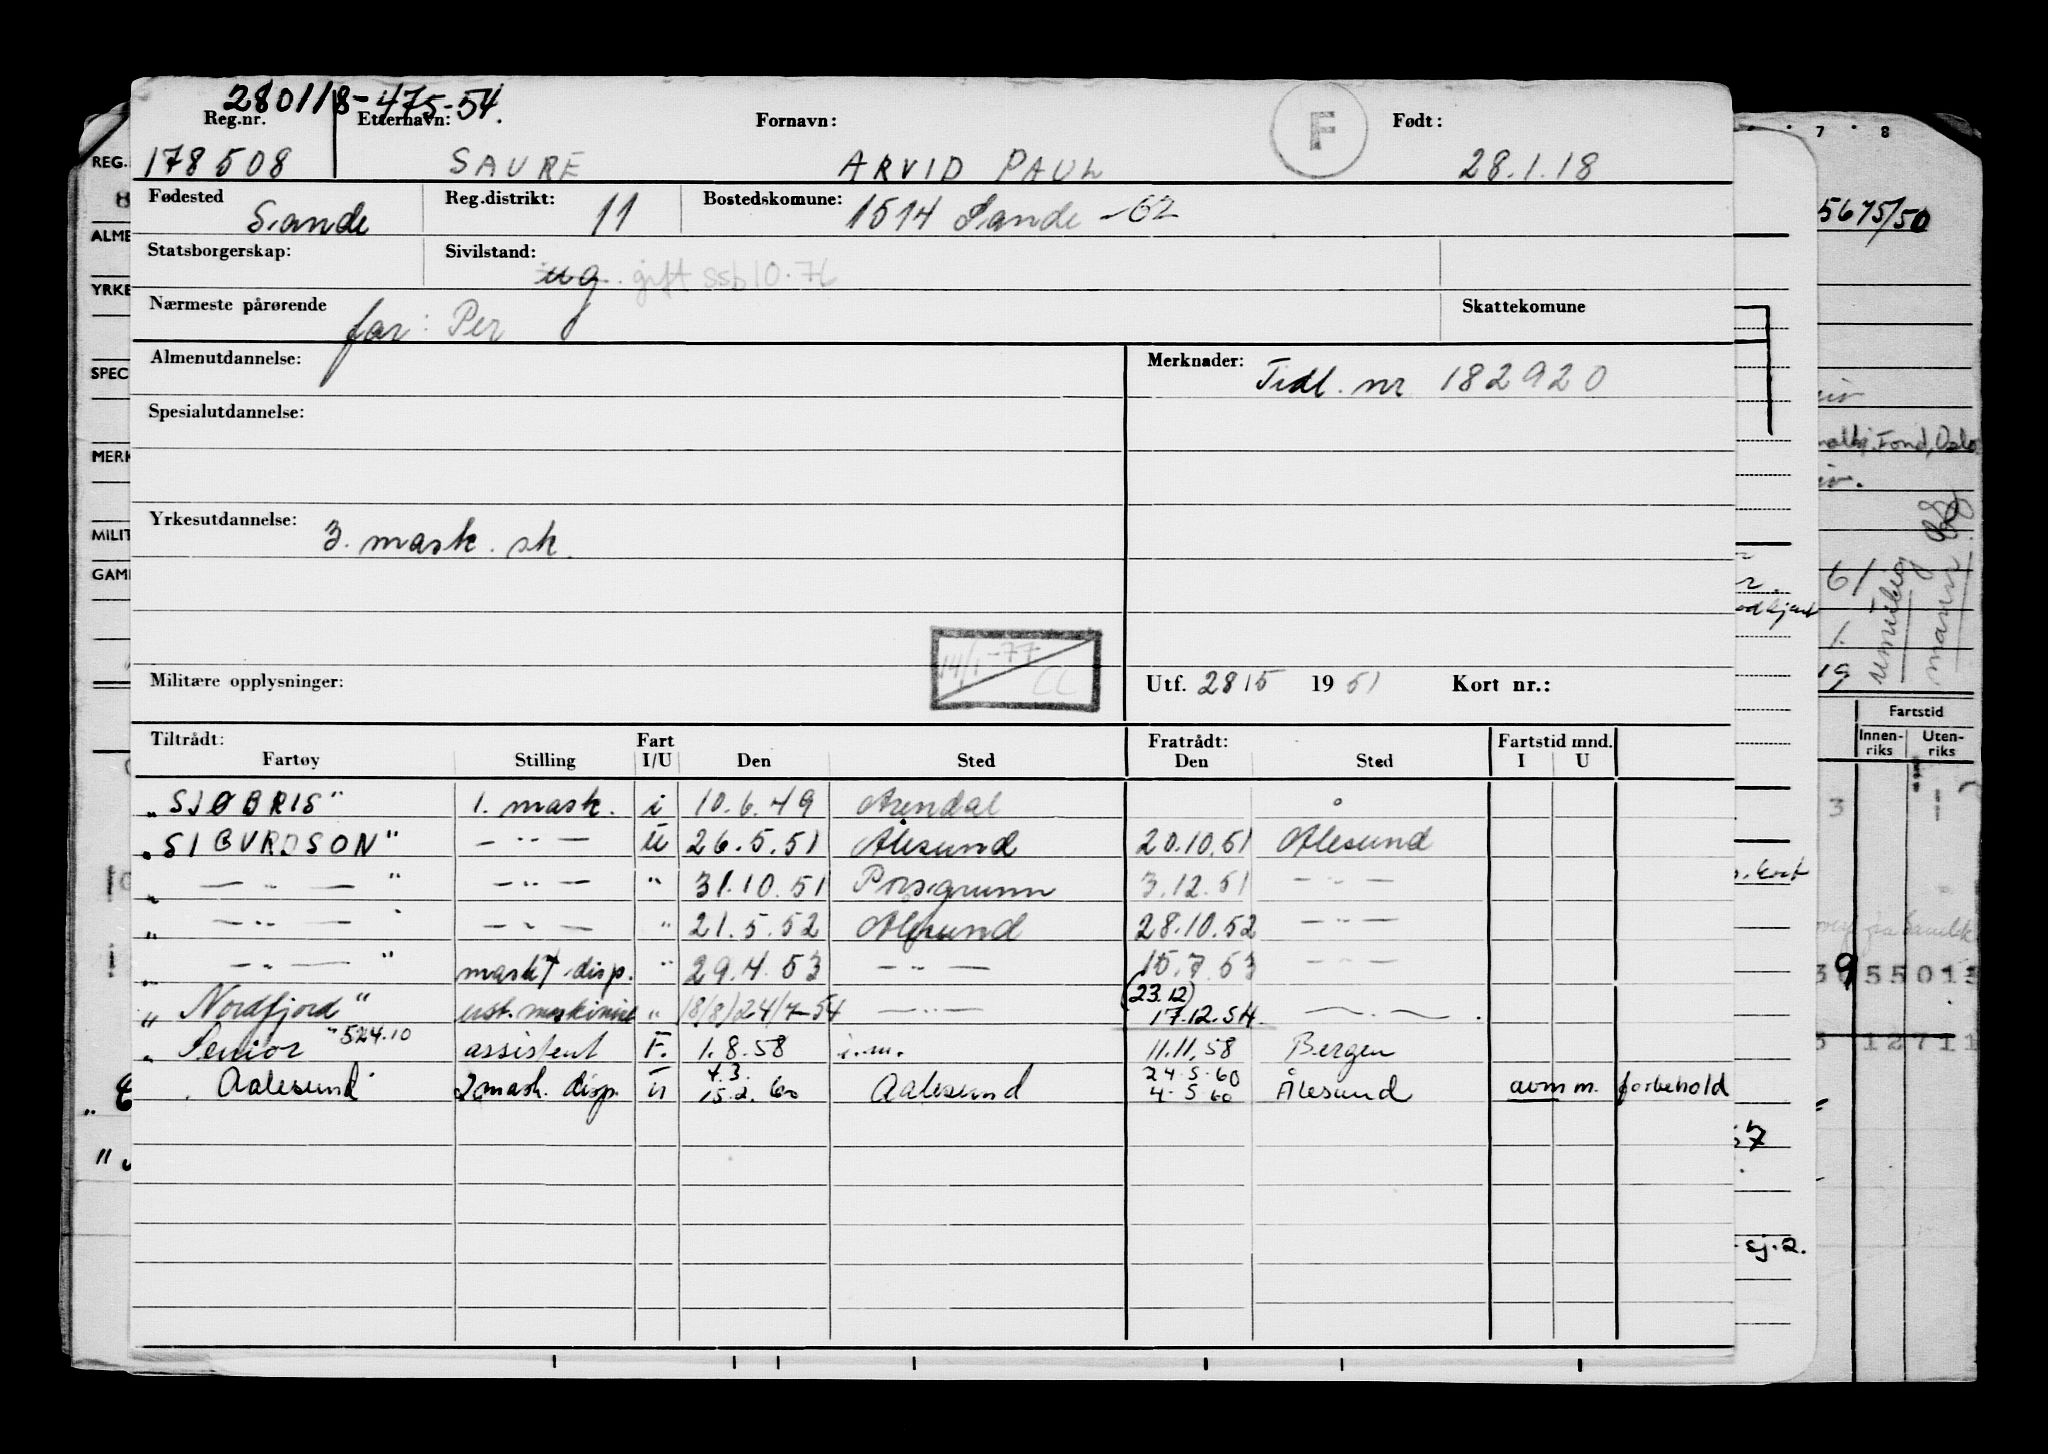 280118-475-54.
Reg.nr. Etternavn: Fornavn: F Født:
178508 SAURE ARVID PAUL 28.1.18
Fødested Sande Reg.distrikt: 11 Bostedskomune: 1514 Sande -62
Statsborgerskap: Sivilstand: ug. gift ssb 10.76
Nærmeste pårørende far: Per Skattekomune
Almenutdannelse: Merknader: Tidl. nr 182920
Spesialutdannelse:
Yrkesutdannelse: 3. mask. sk.
14/1-77 CL
Militære opplysninger: Utf. 2815 1951 Kort nr.:
Tiltrådt: Fart Fratrådt: Fartstid mnd.
Fartøy Stilling I/U Den Sted Den Sted I U
„SJØBRIS" 1. mask. i 10.6.49 Arendal
„SIGURDSON" — " — u 26.5.51 Ålesund 20.10.51 Ålesund
„ — " — " — " — " 31.10.51 Porsgrunn 3.12.51 — " —
„ — " — " — " — " 21.5.52 Ålesund 28.10.52 — " —
„ — " — " mask. disp. " 29.4.53 — " — 15.7.53 — " —
(23.12)
„Nordfjord" ust. maskinist " (8/8) 24/7-54 — " — 17.12.54 — " —
„Senior" 524.10 assistent F. 1.8.58 i.m. 11.11.58 Bergen
4.3. 24.5.60
Aalesund 2 mask. disp. u 15.2.60 Aalesund 4.5.60 Ålesund avm m. forbehold
REG.
ALME
YRKE
SPEC
MERK
MILIT
GAM
7 8
5675/50
Fond, Oslo
61
19
Fartstid
Innen-riks Uten-riks
3
55013
12711
57
sj.2.